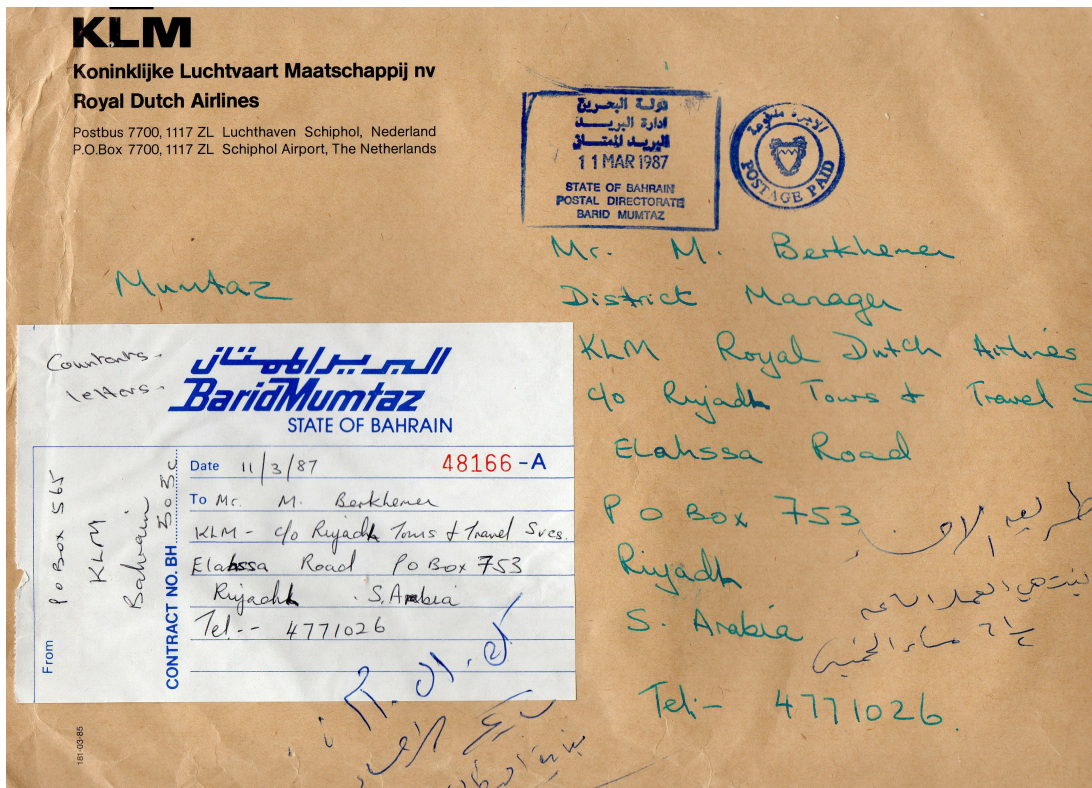 KLM
Koninklijke Luchtvaart Maatschappij nv
Royal Dutch Airlines
Postbus 7700, 1117 ZL Luchthaven Schiphol, Nederland
P.O.Box 7700, 1117 ZL Schiphol Airport, The Netherlands
دولة البحرين
ادارة البريد
البريد الممتاز
11 MAR 1987
STATE OF BAHRAIN
POSTAL DIRECTORATE
BARID MUMTAZ
الاجرة مدفوعة
POSTAGE PAID
Mumtaz
Mr. M. Berkhemer
District Manager
KLM Royal Dutch Airlines
c/o Riyadh Tours & Travel S
Elahssa Road
P O Box 753
Riyadh
S. Arabia
Tel:- 4771026
letters-
البريد الممتاز
BaridMumtaz
STATE OF BAHRAIN
From
P O Box 565
KLM
Bahrain
CONTRACT NO. BH
Date 11/3/87
48166-A
To Mr. M. Berkhemer
KLM - c/o Riyadh Tours & Travel Svcs.
Elahssa Road P O Box 753
Riyadh . S. Arabia
Tel -- 4771026
181-03-85